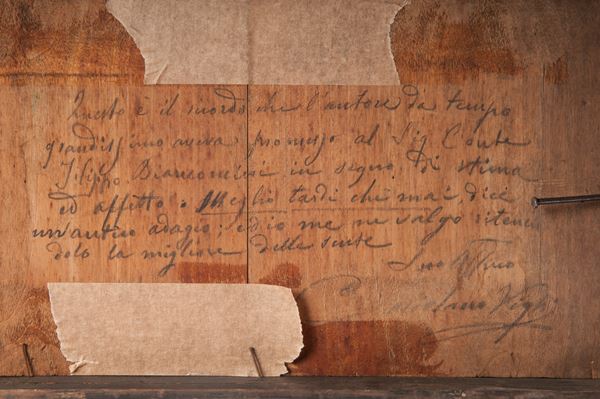 Questo è il ricordo che l'autore da tempo
grandissimo aveva promesso al Sig Conte
Filippo Bianconcini in segno di stima
ed affetto. Meglio tardi che mai, dice
un'antico adagio; ed io me ne valgo riten
dolo la migliore delle scuse
Suo Aff.mo